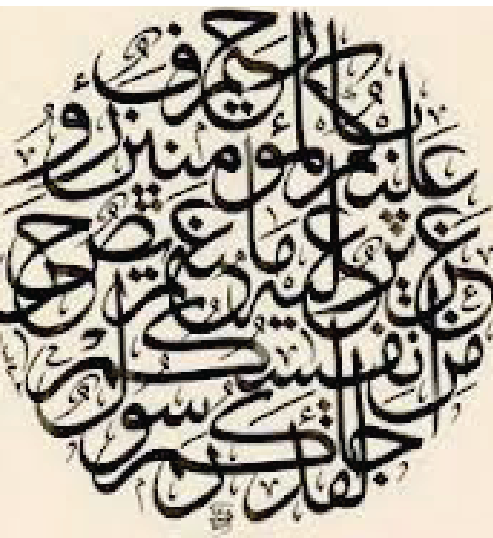 لقد جاءكم رسول
من أنفسكم
عزيز عليه ما عنتم حريص
عليكم بالمؤمنين رءو
ف رحيم